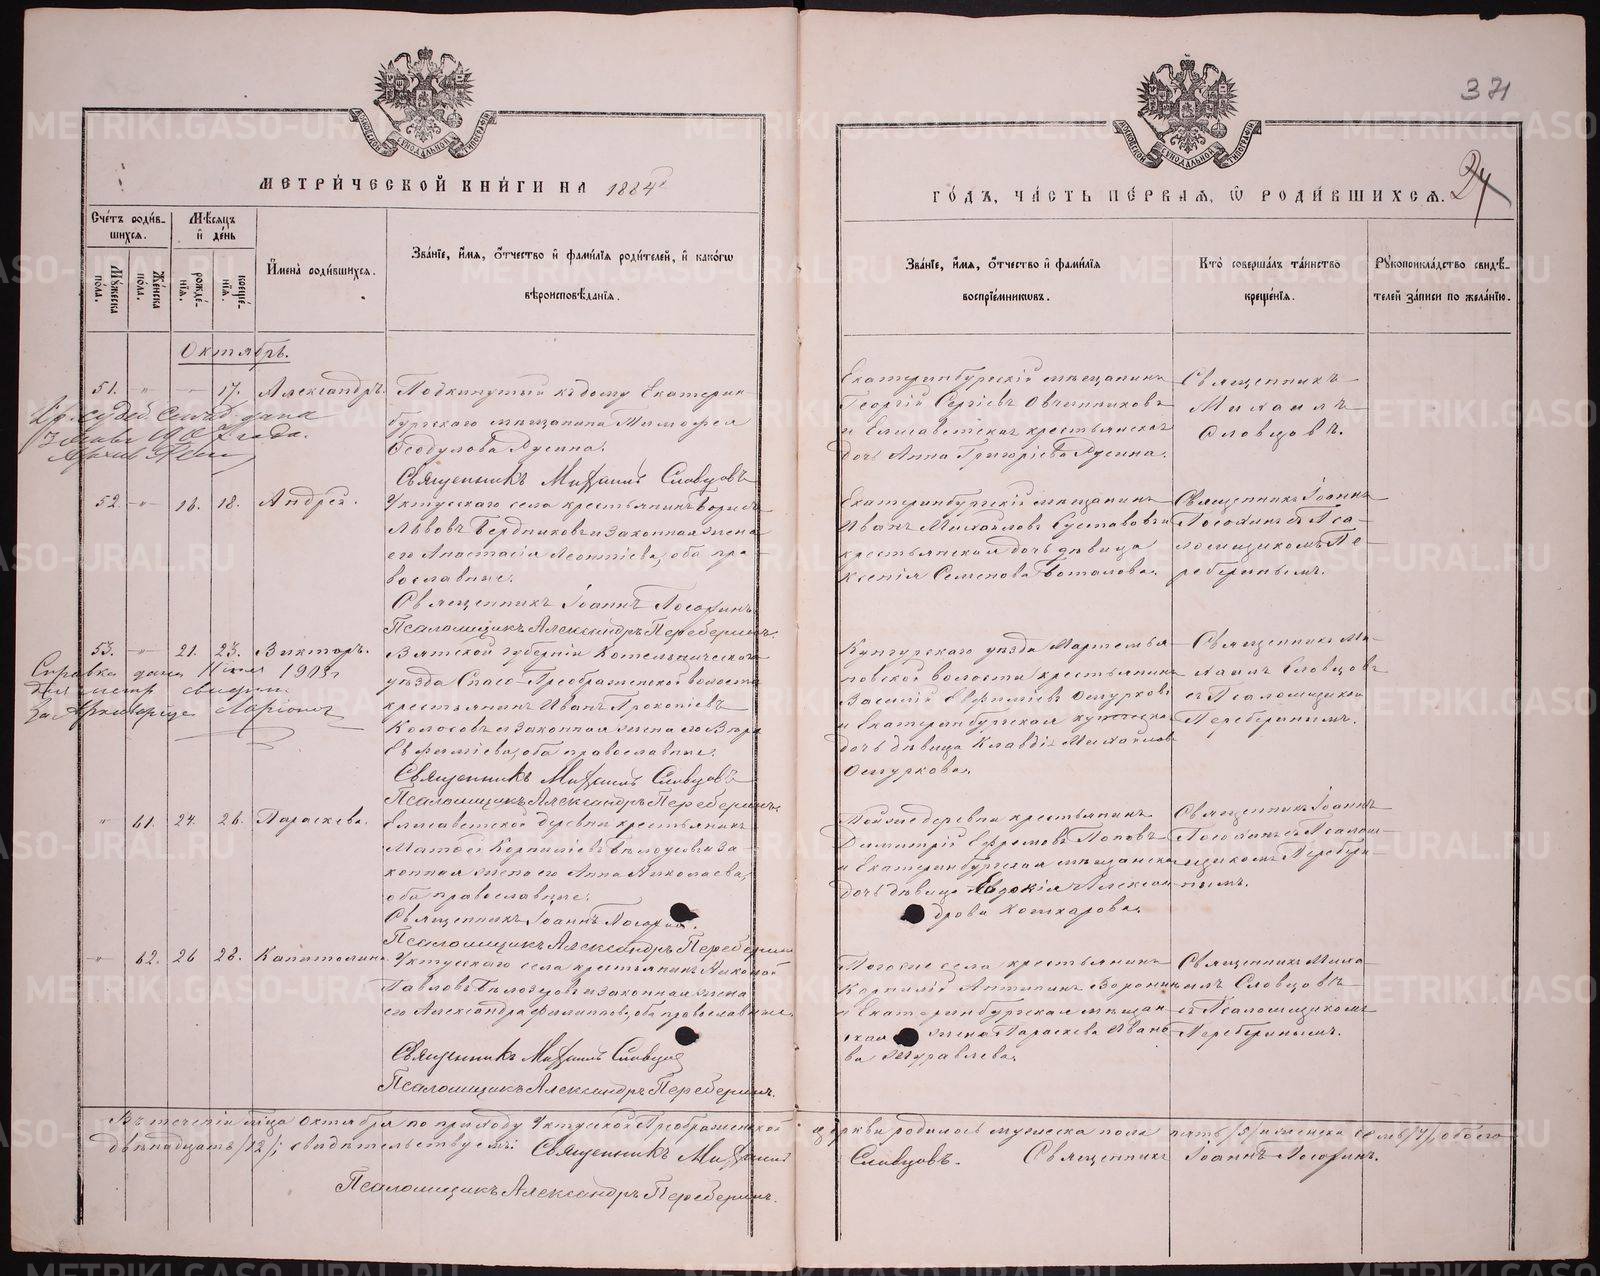 371
24
МЕТРИЧЕСКОЙ КНИГИ НА 1884
ГОДЪ, ЧАСТЬ ПЕРВАЯ, Ѡ РОДИВШИХСЯ.
Счетъ родив-
шихся.
Мѣсяцъ
и день
Имена родившихся.
Званіе, имя, отчество и фамилія родителей, и какогω
вѣроисповѣданія.
Мужеска
пола.
Женска
пола.
рожде-
нія.
креще-
нія.
Званіе, имя, отчество и фамилія
воспріемниковъ.
Кто совершалъ таинство
крещенія.
Рукоприкладство свидѣ-
телей записи по желанію.
Октябрь.
51. " — 17. Александръ.
Подкинутый къ дому Екатерин-
бургскаго мѣщанина Тимофея
Ѳеодулова Русина.
Священникъ Михаилъ Словцовъ
Екатеринбургскій мѣщанинъ
Георгій Сергіевъ Овчинниковъ
и Елисаветская крестьянская
дочь Анна Григоріева Русина.
Священникъ
Михаилъ
Словцовъ.
52. " 16. 18. Андрей.
Уктусскаго села крестьянинъ Борисъ
Львовъ Бердниковъ и законная жена
его Анастасія Леонтіева, оба пра-
вославные.
Священникъ Іоаннъ
Псаломщикъ Александръ Переберинъ.
Екатеринбургскій мѣщанинъ
Иванъ Михайловъ и
крестьянская дочь дѣвица
Ксенія Семенова
Священникъ Іоаннъ
съ Пса-
ломщикомъ Пе-
реберинымъ.
53. " 21. 23. Викторъ.
Справка дана 1903г
Вятской губерніи Котельническаго
уѣзда Спасо-Преображенской волости
крестьянинъ Иванъ Прокопіевъ
Колосовъ и законная жена его Вѣра
Евфиміева, оба православные.
Священникъ Михаилъ Словцовъ
Псаломщикъ Александръ Переберинъ.
Кунгурскаго уѣзда Мартемья-
новской волости крестьянинъ
Василій Евфиміевъ Ошурковъ
и Екатеринбургская купеческая
дочь дѣвица Клавдія Михайлова
Ошуркова.
Священникъ Ми-
хаилъ Словцовъ
съ Псаломщикомъ
Переберинымъ.
" 61. 24. 26. Параскева.
Елисаветской деревни крестьянинъ
Матѳей Корниліевъ Бѣлоусовъ и за-
конная жена его Анна Николаева,
оба православные.
Священникъ Іоаннъ
Псаломщикъ Александръ Переберинъ
Той же деревни крестьянинъ
Димитрій Ефремовъ Поповъ
и Екатеринбургская мѣщанская
дочь дѣвица Евдокія Алексан-
дрова Кошкарова.
Священникъ Іоаннъ
съ Псалом-
щикомъ Перебери-
нымъ.
" 62. 26 28. Капитолина.
Уктусскаго села крестьянинъ Николай
Павловъ Бѣлозеровъ и законная жена
его Александра Филипова, оба православные.
Священникъ Михаилъ Словцовъ
Псаломщикъ Александръ Переберинъ.
Того же села крестьянинъ
Корнилій Антипинъ Воронинъ
и Екатеринбургская мѣщан-
ская жена Параскева Ивано-
ва Журавлева.
Священникъ Миха-
илъ Словцовъ
съ Псаломщикомъ
Переберинымъ.
Въ теченіи мѣсяца Октября по приходу Уктусской Преображенской церкви родилось мужеска пола пять /5/, женска семь /7/, обоего
двѣнадцать /12/; свидѣтельствуемъ: Священникъ Михаилъ Словцовъ. Священникъ Іоаннъ
Псаломщикъ Александръ Переберинъ.
METRIKI.GASO-URAL.RU